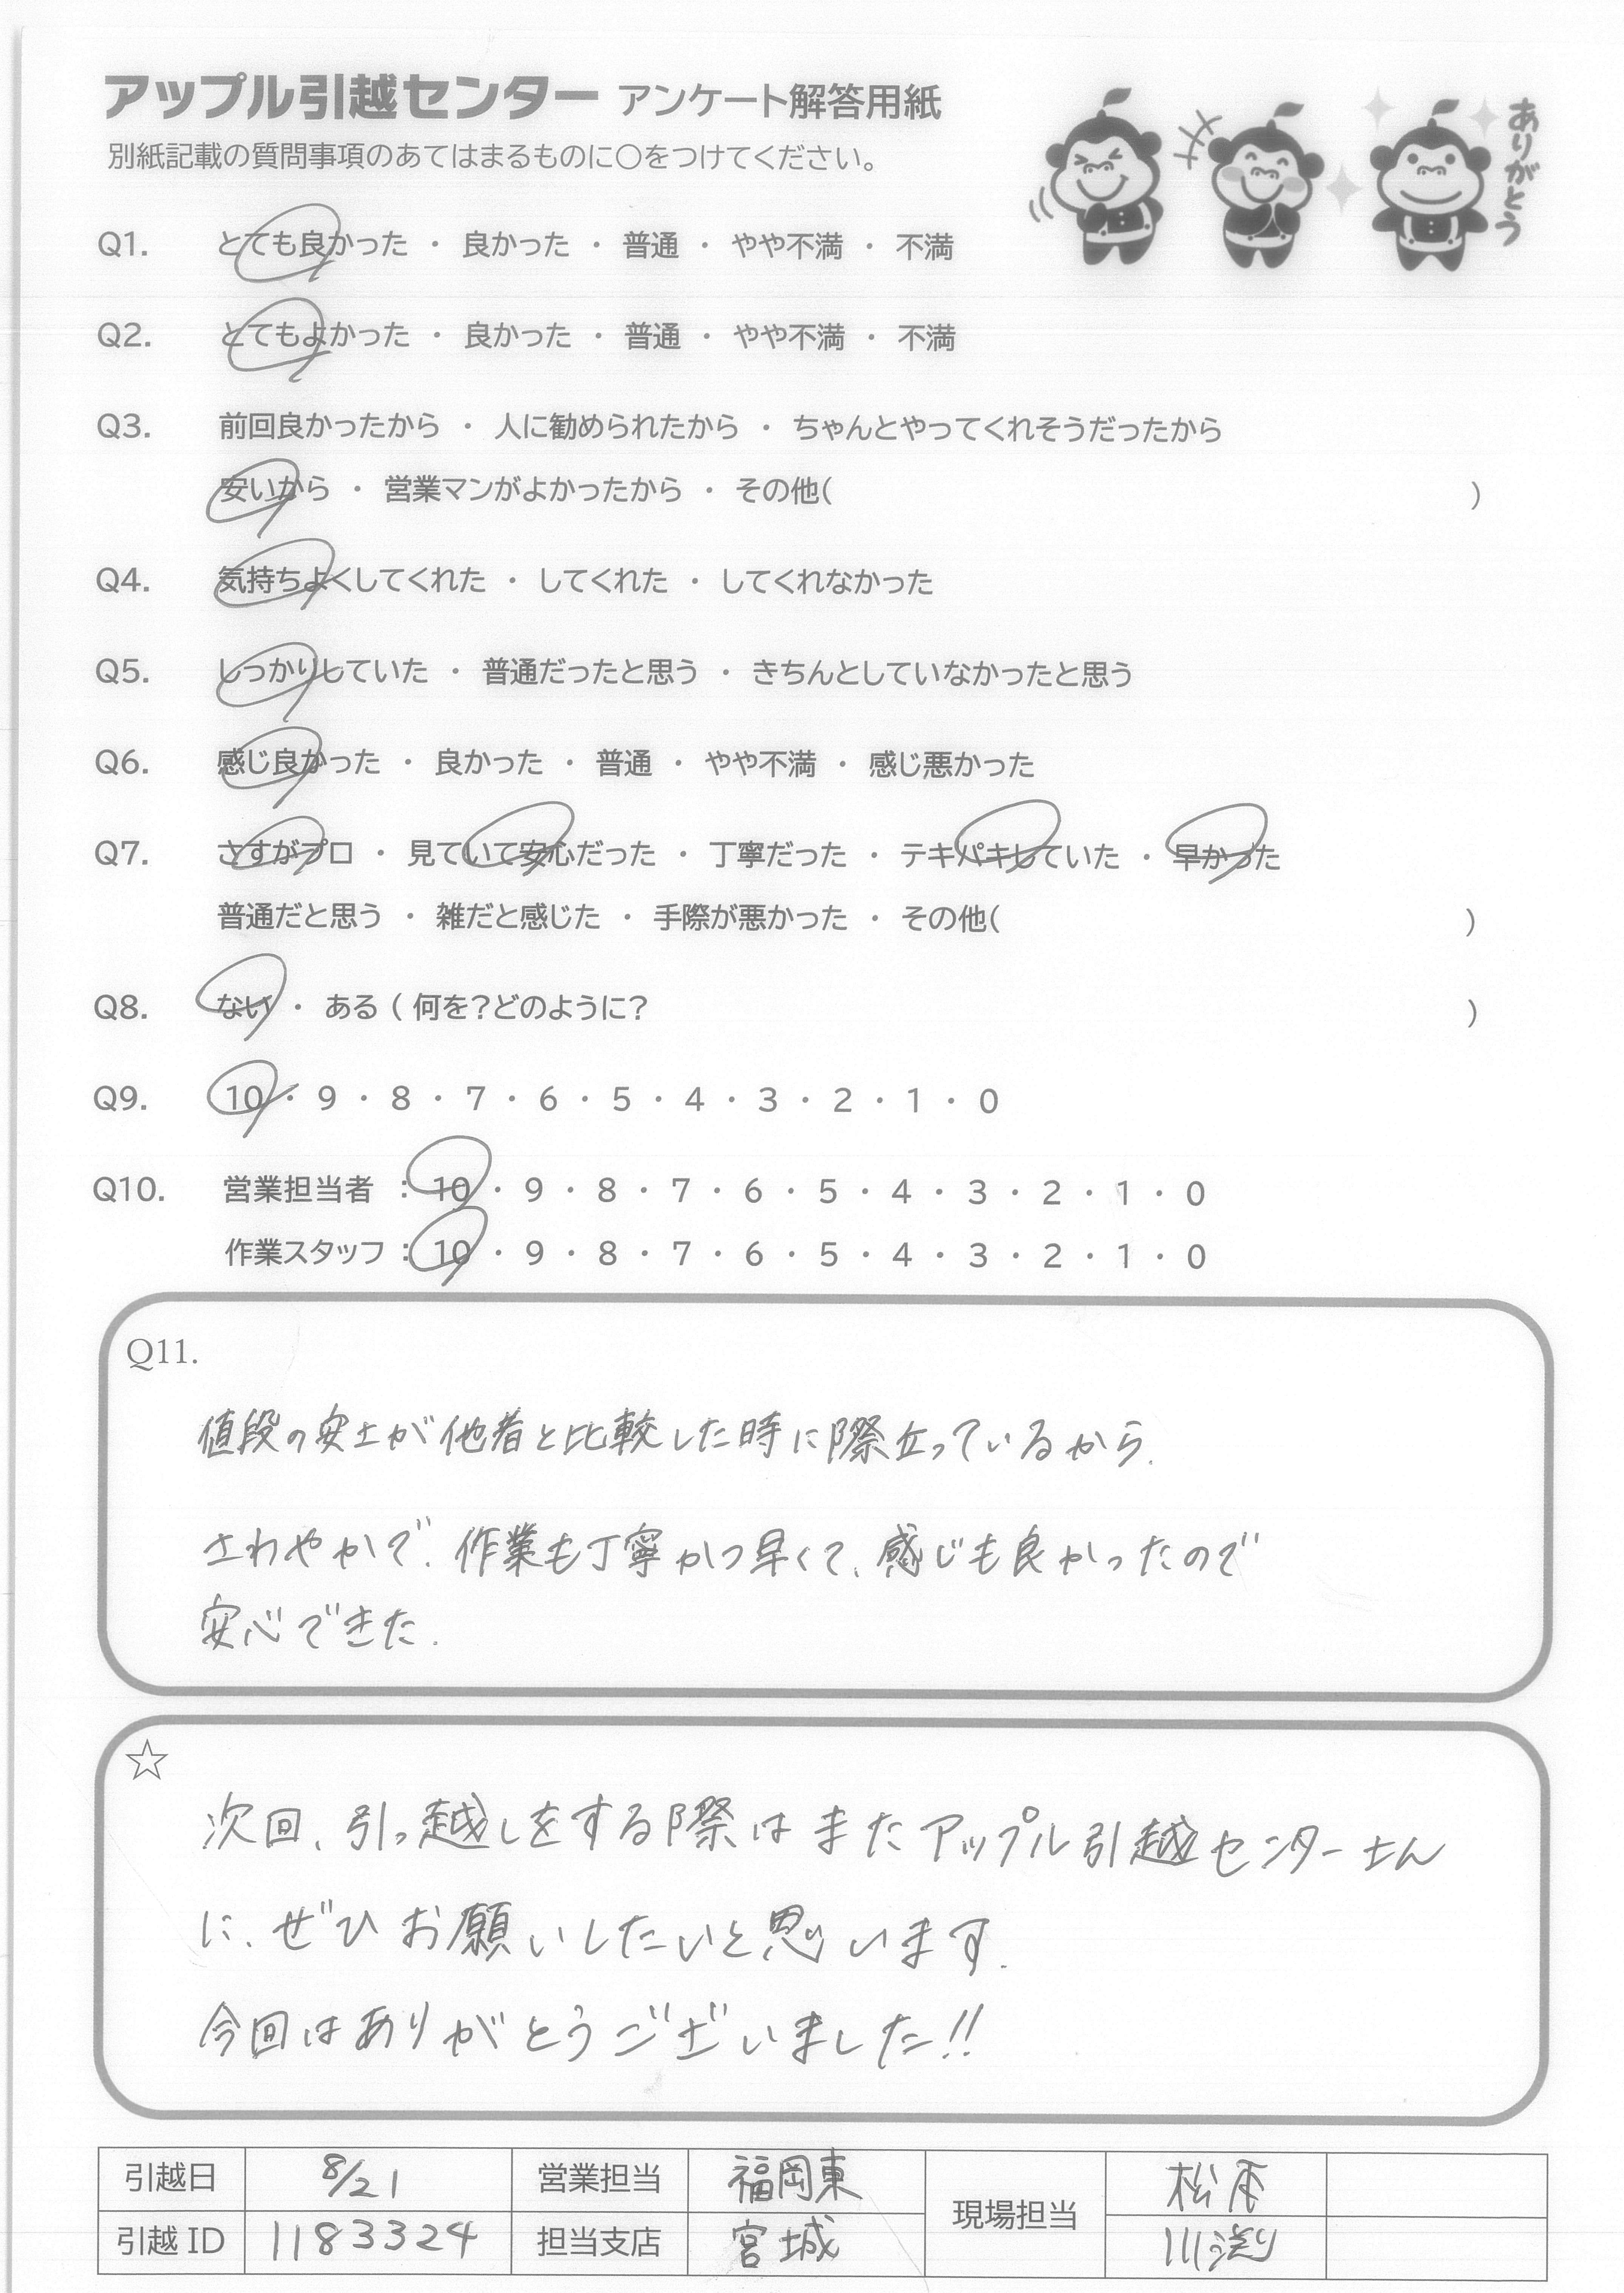 アップル引越センター アンケート解答用紙
別紙記載の質問事項のあてはまるものに○をつけてください。
ありがとう
Q1. とても良かった ・ 良かった ・ 普通 ・ やや不満 ・ 不満
Q2. とてもよかった ・ 良かった ・ 普通 ・ やや不満 ・ 不満
Q3. 前回良かったから ・ 人に勧められたから ・ ちゃんとやってくれそうだったから
安いから ・ 営業マンがよかったから ・ その他( )
Q4. 気持ちよくしてくれた ・ してくれた ・ してくれなかった
Q5. しっかりしていた ・ 普通だったと思う ・ きちんとしていなかったと思う
Q6. 感じ良かった ・ 良かった ・ 普通 ・ やや不満 ・ 感じ悪かった
Q7. さすがプロ ・ 見ていて安心だった ・ 丁寧だった ・ テキパキしていた ・ 早かった
普通だと思う ・ 雑だと感じた ・ 手際が悪かった ・ その他( )
Q8. ない ・ ある ( 何を?どのように? )
Q9. 10 ・ 9 ・ 8 ・ 7 ・ 6 ・ 5 ・ 4 ・ 3 ・ 2 ・ 1 ・ 0
Q10. 営業担当者 : 10 ・ 9 ・ 8 ・ 7 ・ 6 ・ 5 ・ 4 ・ 3 ・ 2 ・ 1 ・ 0
作業スタッフ : 10 ・ 9 ・ 8 ・ 7 ・ 6 ・ 5 ・ 4 ・ 3 ・ 2 ・ 1 ・ 0
Q11.
値段の安さが他者と比較した時に際立っているから.
さわやかで、作業も丁寧かつ早くて、感じも良かったので
安心できた.
☆
次回、引っ越しをする際はまたアップル引越センターさん
に、ぜひお願いしたいと思います.
今回はありがとうございました!!
引越日 8/21 営業担当 福岡東 現場担当 松本
引越 ID 1183324 担当支店 宮城